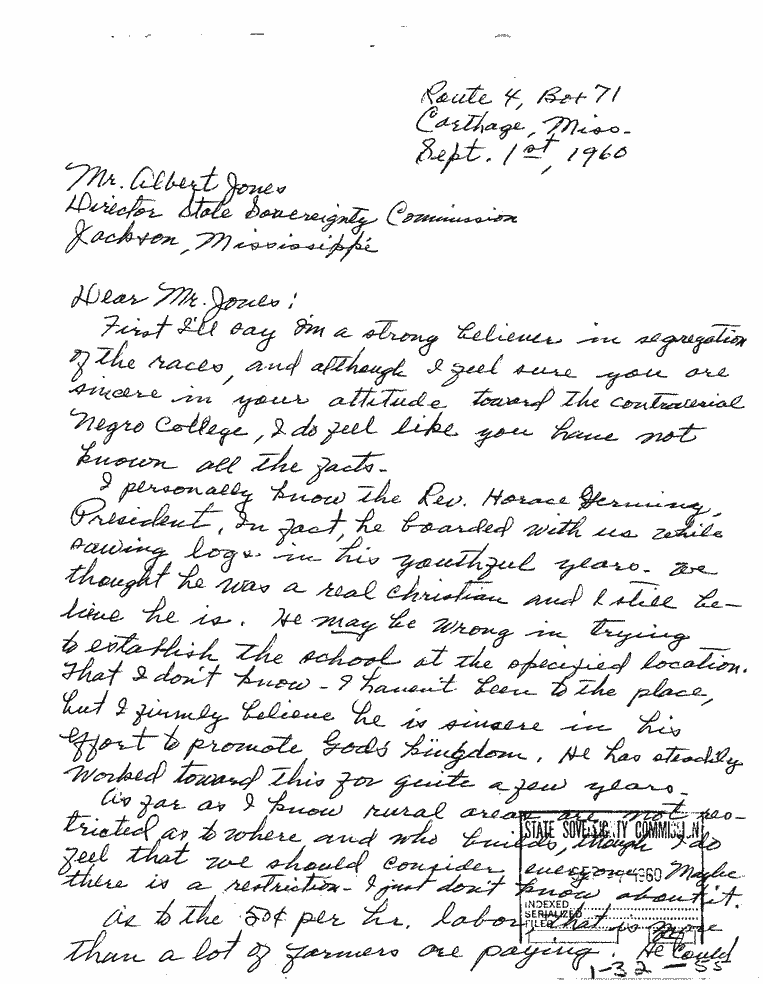 Route 4, Box 71
Carthage, Miss.
Sept. 1st, 1960
Mr. Albert Jones
Director State Sovereignty Commission
Jackson, Mississippi
Dear Mr. Jones:
First I'll say I'm a strong believer in segregation
of the races, and although I feel sure you are
sincere in your attitude toward the controversial
Negro College, I do feel like you have not
known all the facts.
I personally know the Rev. Horace Germany,
President. In fact, he boarded with us while
sawing logs in his youthful years. We
thought he was a real Christian and I still be-
lieve he is. He may be wrong in trying
to establish the school at the specified location.
That I don't know - I haven't been to the place,
but I firmly believe he is sincere in his
effort to promote God's kingdom. He has steadily
worked toward this for quite a few years.
As far as I know rural areas are not res-
tricted as to where and who builds, though I do
feel that we should consider everyone. Maybe
there is a restriction - I just don't know about it.
As to the 50¢ per hr. labor, that is more
than a lot of farmers are paying. He could
STATE SOVEREIGNTY COMMISSION
1960
INDEXED
SERIALIZED
FILED
1-32-55